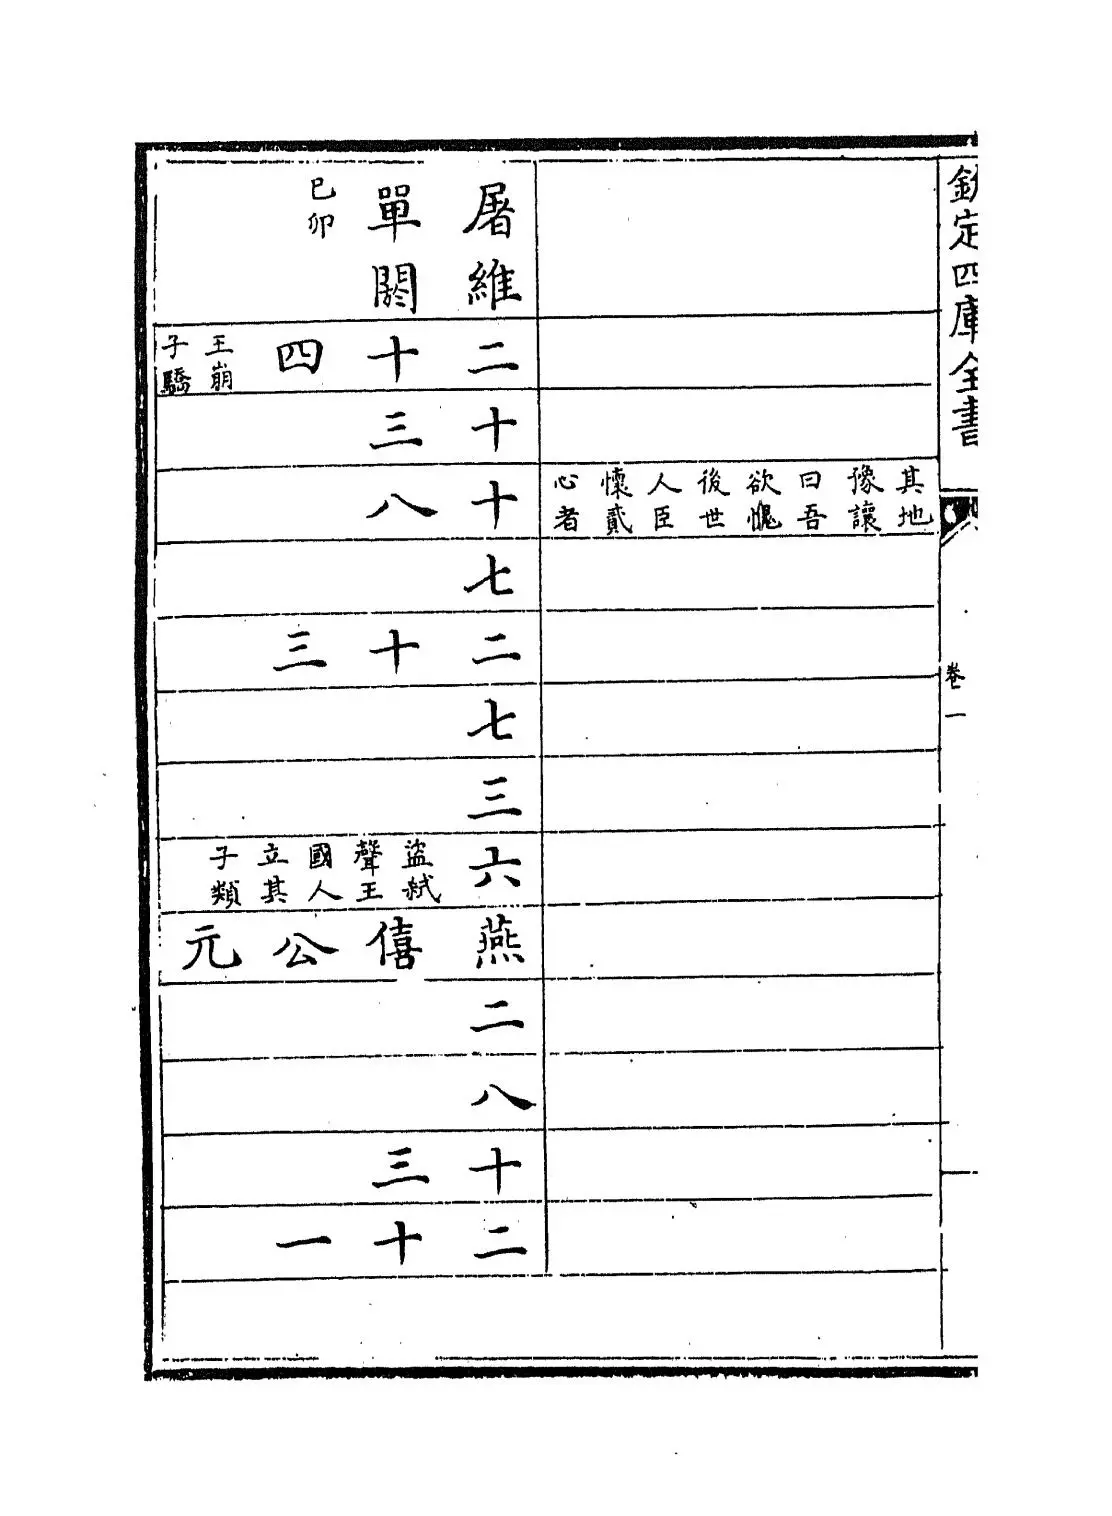 欽定四庫全書
卷一
其地
豫讓
曰吾
欲愧
後世
人臣
懷貳
心者
屠維
單閼
巳卯
二十四
王崩
子驕
十三
十八
七
二十三
七
三
六
盜弑
聲王
國人
立其
子類
燕僖公元
二
八
十三
二十一